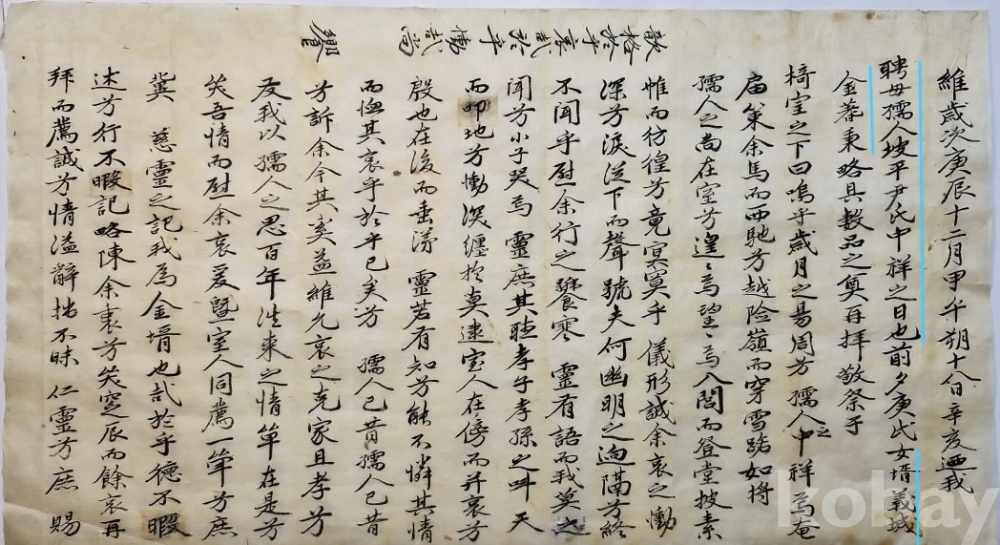 維歲次庚辰十二月甲午朔十八日辛亥迺我
聘母孺人坡平尹氏中祥之日也前夕庚戌女壻義城
金蓍秉略具數品之奠再拜敬祭于
椅室之下曰嗚乎歲月之易周兮孺人之中祥焉奄
屆策余馬而西馳兮越險嶺而穿雪路如將
孺人之尚在室兮遑〻焉望〻焉入閤而登堂披素
帷而彷徨兮竟冥冥乎 儀形誠余哀之慟
深兮淚從下而聲號夫何幽明之逈隔兮終
不聞乎慰余行之飢寒 靈有語而我莫之
聞兮小子哭焉 靈庶其聽孝子孝孫之呌天
而叩地兮慟深纏於莫逮室人在傍而幷哀兮
殷也在後而垂涕 靈若有知兮能不憐其情
而恤其哀乎於乎已矣兮 孺人已昔孺人已昔
兮訴余今其奚益維允哀之克家且孝兮
友我以孺人之思百年往來之情單在是兮
矣吾情而慰余哀爰曁室人同薦一單兮庶
冀 慈靈之記我為金壻也哉於乎德不暇
述兮行不暇記略陳余衷兮矣 辰而餘哀再
拜而薦誠兮情溢辭拙不昧 仁靈兮庶賜
歆格於乎哀哉於乎慟哉尚
饗
kobay